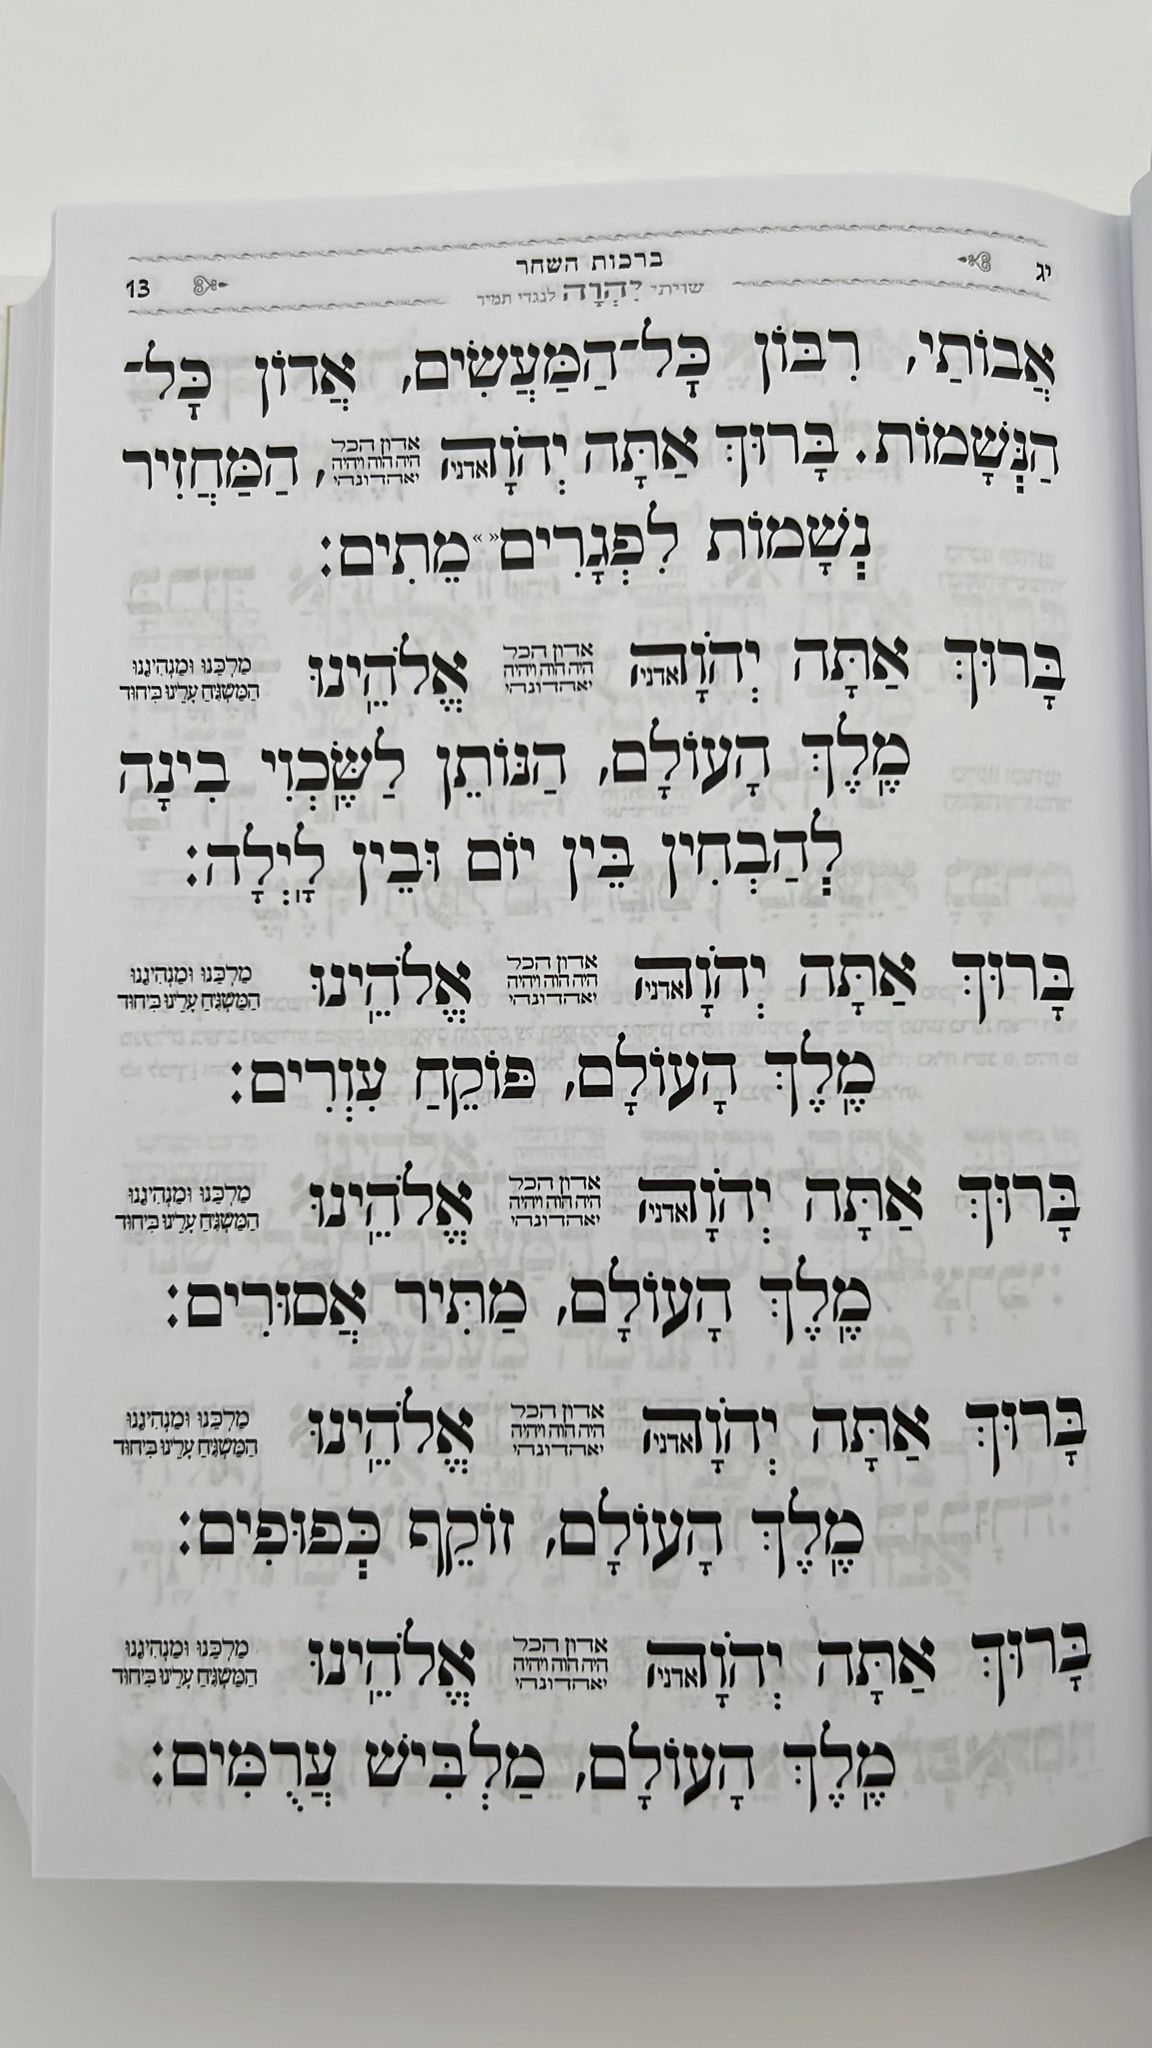 יג ברכות השחר 13
שויתי יְהֹוָה לנגדי תמיד
אֲבוֹתַי, רִבּוֹן כָּל־הַמַּעֲשִׂים, אֲדוֹן כָּל־
הַנְּשָׁמוֹת. בָּרוּךְ אַתָּה יְהֹוָה אדני אדון הכל היה הוה ויהיה יאהדונהי, הַמַּחֲזִיר
נְשָׁמוֹת לִפְגָרִים «» מֵתִים:
בָּרוּךְ אַתָּה יְהֹוָה אדני אדון הכל היה הוה ויהיה יאהדונהי אֱלֹהֵינוּ מַלְכֵּנוּ וּמַנְהִיגֵנוּ הַמַּשְׁגִּיחַ עָלֵינוּ בְּיִחוּד
מֶלֶךְ הָעוֹלָם, הַנּוֹתֵן לַשֶּׂכְוִי בִינָה
לְהַבְחִין בֵּין יוֹם וּבֵין לָיְלָה:
בָּרוּךְ אַתָּה יְהֹוָה אדני אדון הכל היה הוה ויהיה יאהדונהי אֱלֹהֵינוּ מַלְכֵּנוּ וּמַנְהִיגֵנוּ הַמַּשְׁגִּיחַ עָלֵינוּ בְּיִחוּד
מֶלֶךְ הָעוֹלָם, פּוֹקֵחַ עִוְרִים:
בָּרוּךְ אַתָּה יְהֹוָה אדני אדון הכל היה הוה ויהיה יאהדונהי אֱלֹהֵינוּ מַלְכֵּנוּ וּמַנְהִיגֵנוּ הַמַּשְׁגִּיחַ עָלֵינוּ בְּיִחוּד
מֶלֶךְ הָעוֹלָם, מַתִּיר אֲסוּרִים:
בָּרוּךְ אַתָּה יְהֹוָה אדני אדון הכל היה הוה ויהיה יאהדונהי אֱלֹהֵינוּ מַלְכֵּנוּ וּמַנְהִיגֵנוּ הַמַּשְׁגִּיחַ עָלֵינוּ בְּיִחוּד
מֶלֶךְ הָעוֹלָם, זוֹקֵף כְּפוּפִים:
בָּרוּךְ אַתָּה יְהֹוָה אדני אדון הכל היה הוה ויהיה יאהדונהי אֱלֹהֵינוּ מַלְכֵּנוּ וּמַנְהִיגֵנוּ הַמַּשְׁגִּיחַ עָלֵינוּ בְּיִחוּד
מֶלֶךְ הָעוֹלָם, מַלְבִּישׁ עֲרֻמִּים: